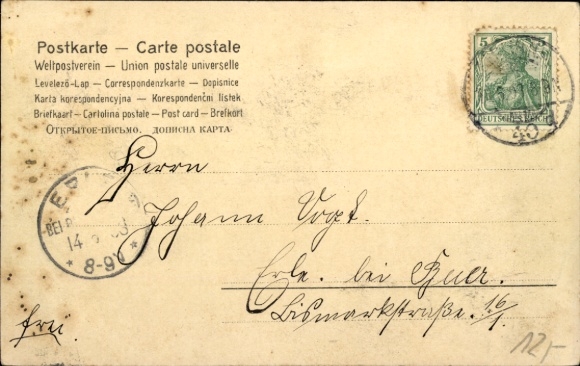 Postkarte — Carte postale
Weltpostverein — Union postale universelle
Levelező-Lap — Correspondenzkarte — Dopisnice
Karta korespondencyjna — Korespondenční lístek
Briefkaart — Cartolina postale — Post card — Brefkort
Открытое-письмо. дописна карта
5
DEUTSCHES REICH
Herrn
Johann Vogt.
BEI
14
* 8-9 *
Erle. bei Buer.
Bismarkstraße. 16/1
frei.
12,-